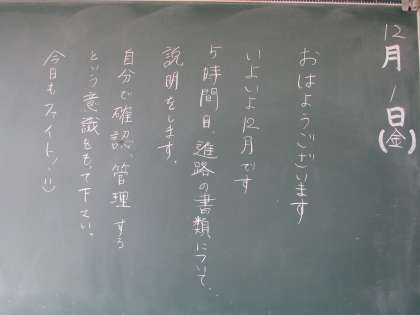 12月1日(金)
おはようございます
いよいよ12月です
5時間目、進路の書類について、
説明をします。
自分で確認、管理する
という意識をもって下さい。
今日もファイト!!:)